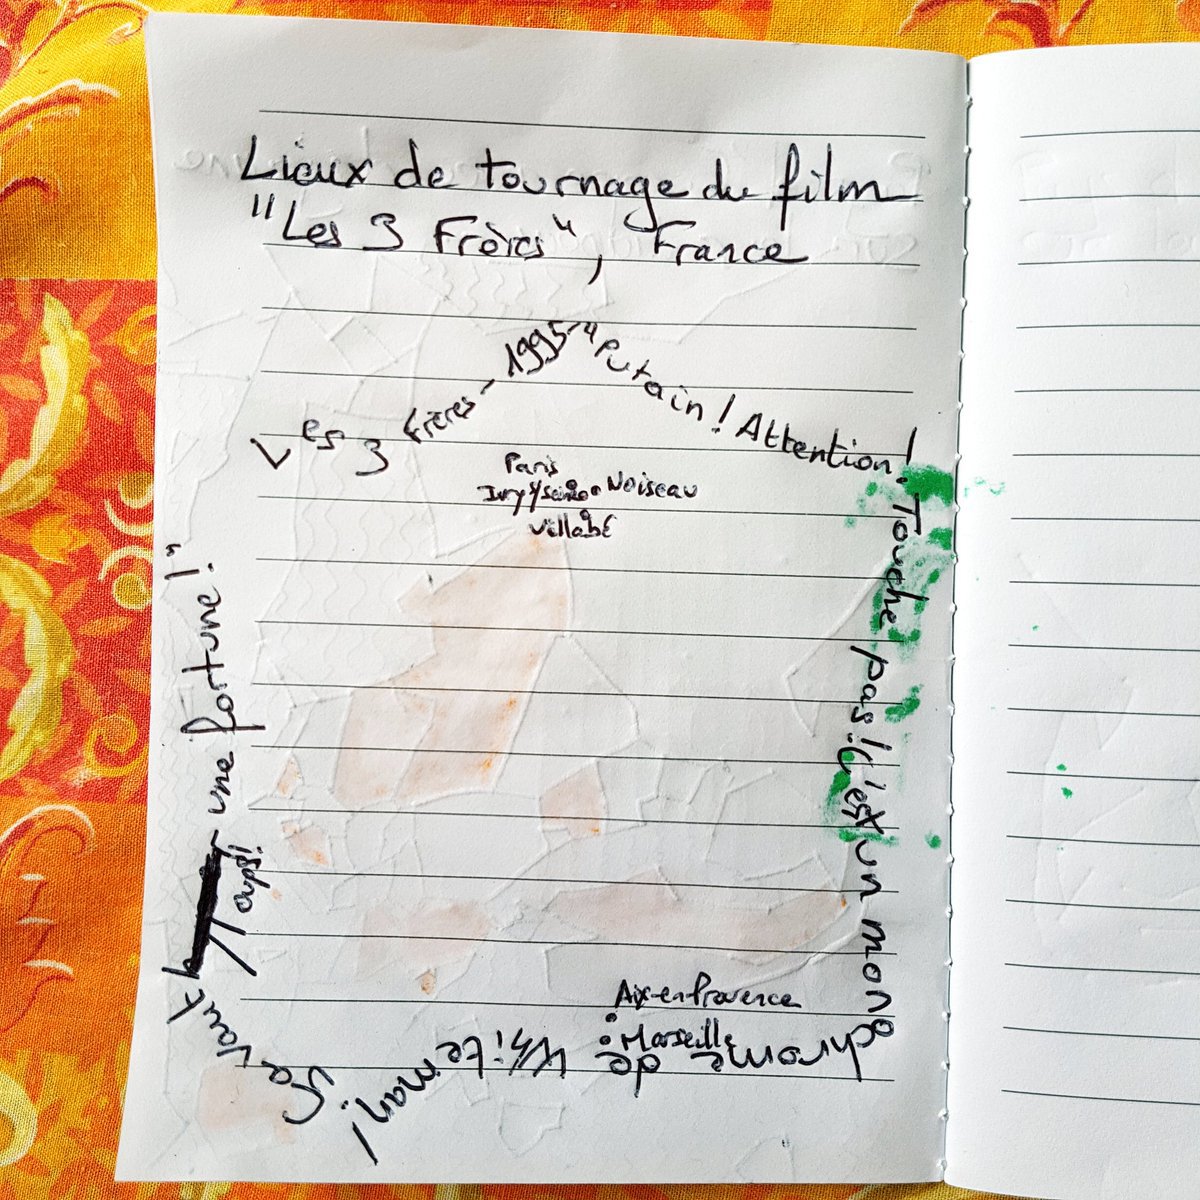 Lieux de tournage du film
"Les 3 Frères", France
Les 3 Frères - 1995 - "Putain! Attention! Touche pas! C'est un monochrome de Whiteman! Ça vaut une fortune!"
oups!
Paris
Ivry s/seine Noiseau
Villabé
Aix-en Provence
Marseille